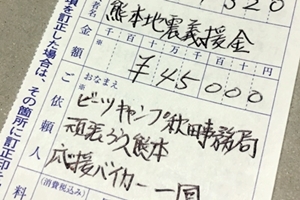 者名
熊本地震義援金
金額
千百十万千百十円
¥45000
ご依頼人
おなまえ
※
ビーツキャンプ秋田事務局
頑張ろう熊本
応援バイカー一同
(消費税込み)
料
項を訂正した場合は、その箇所に訂正印を